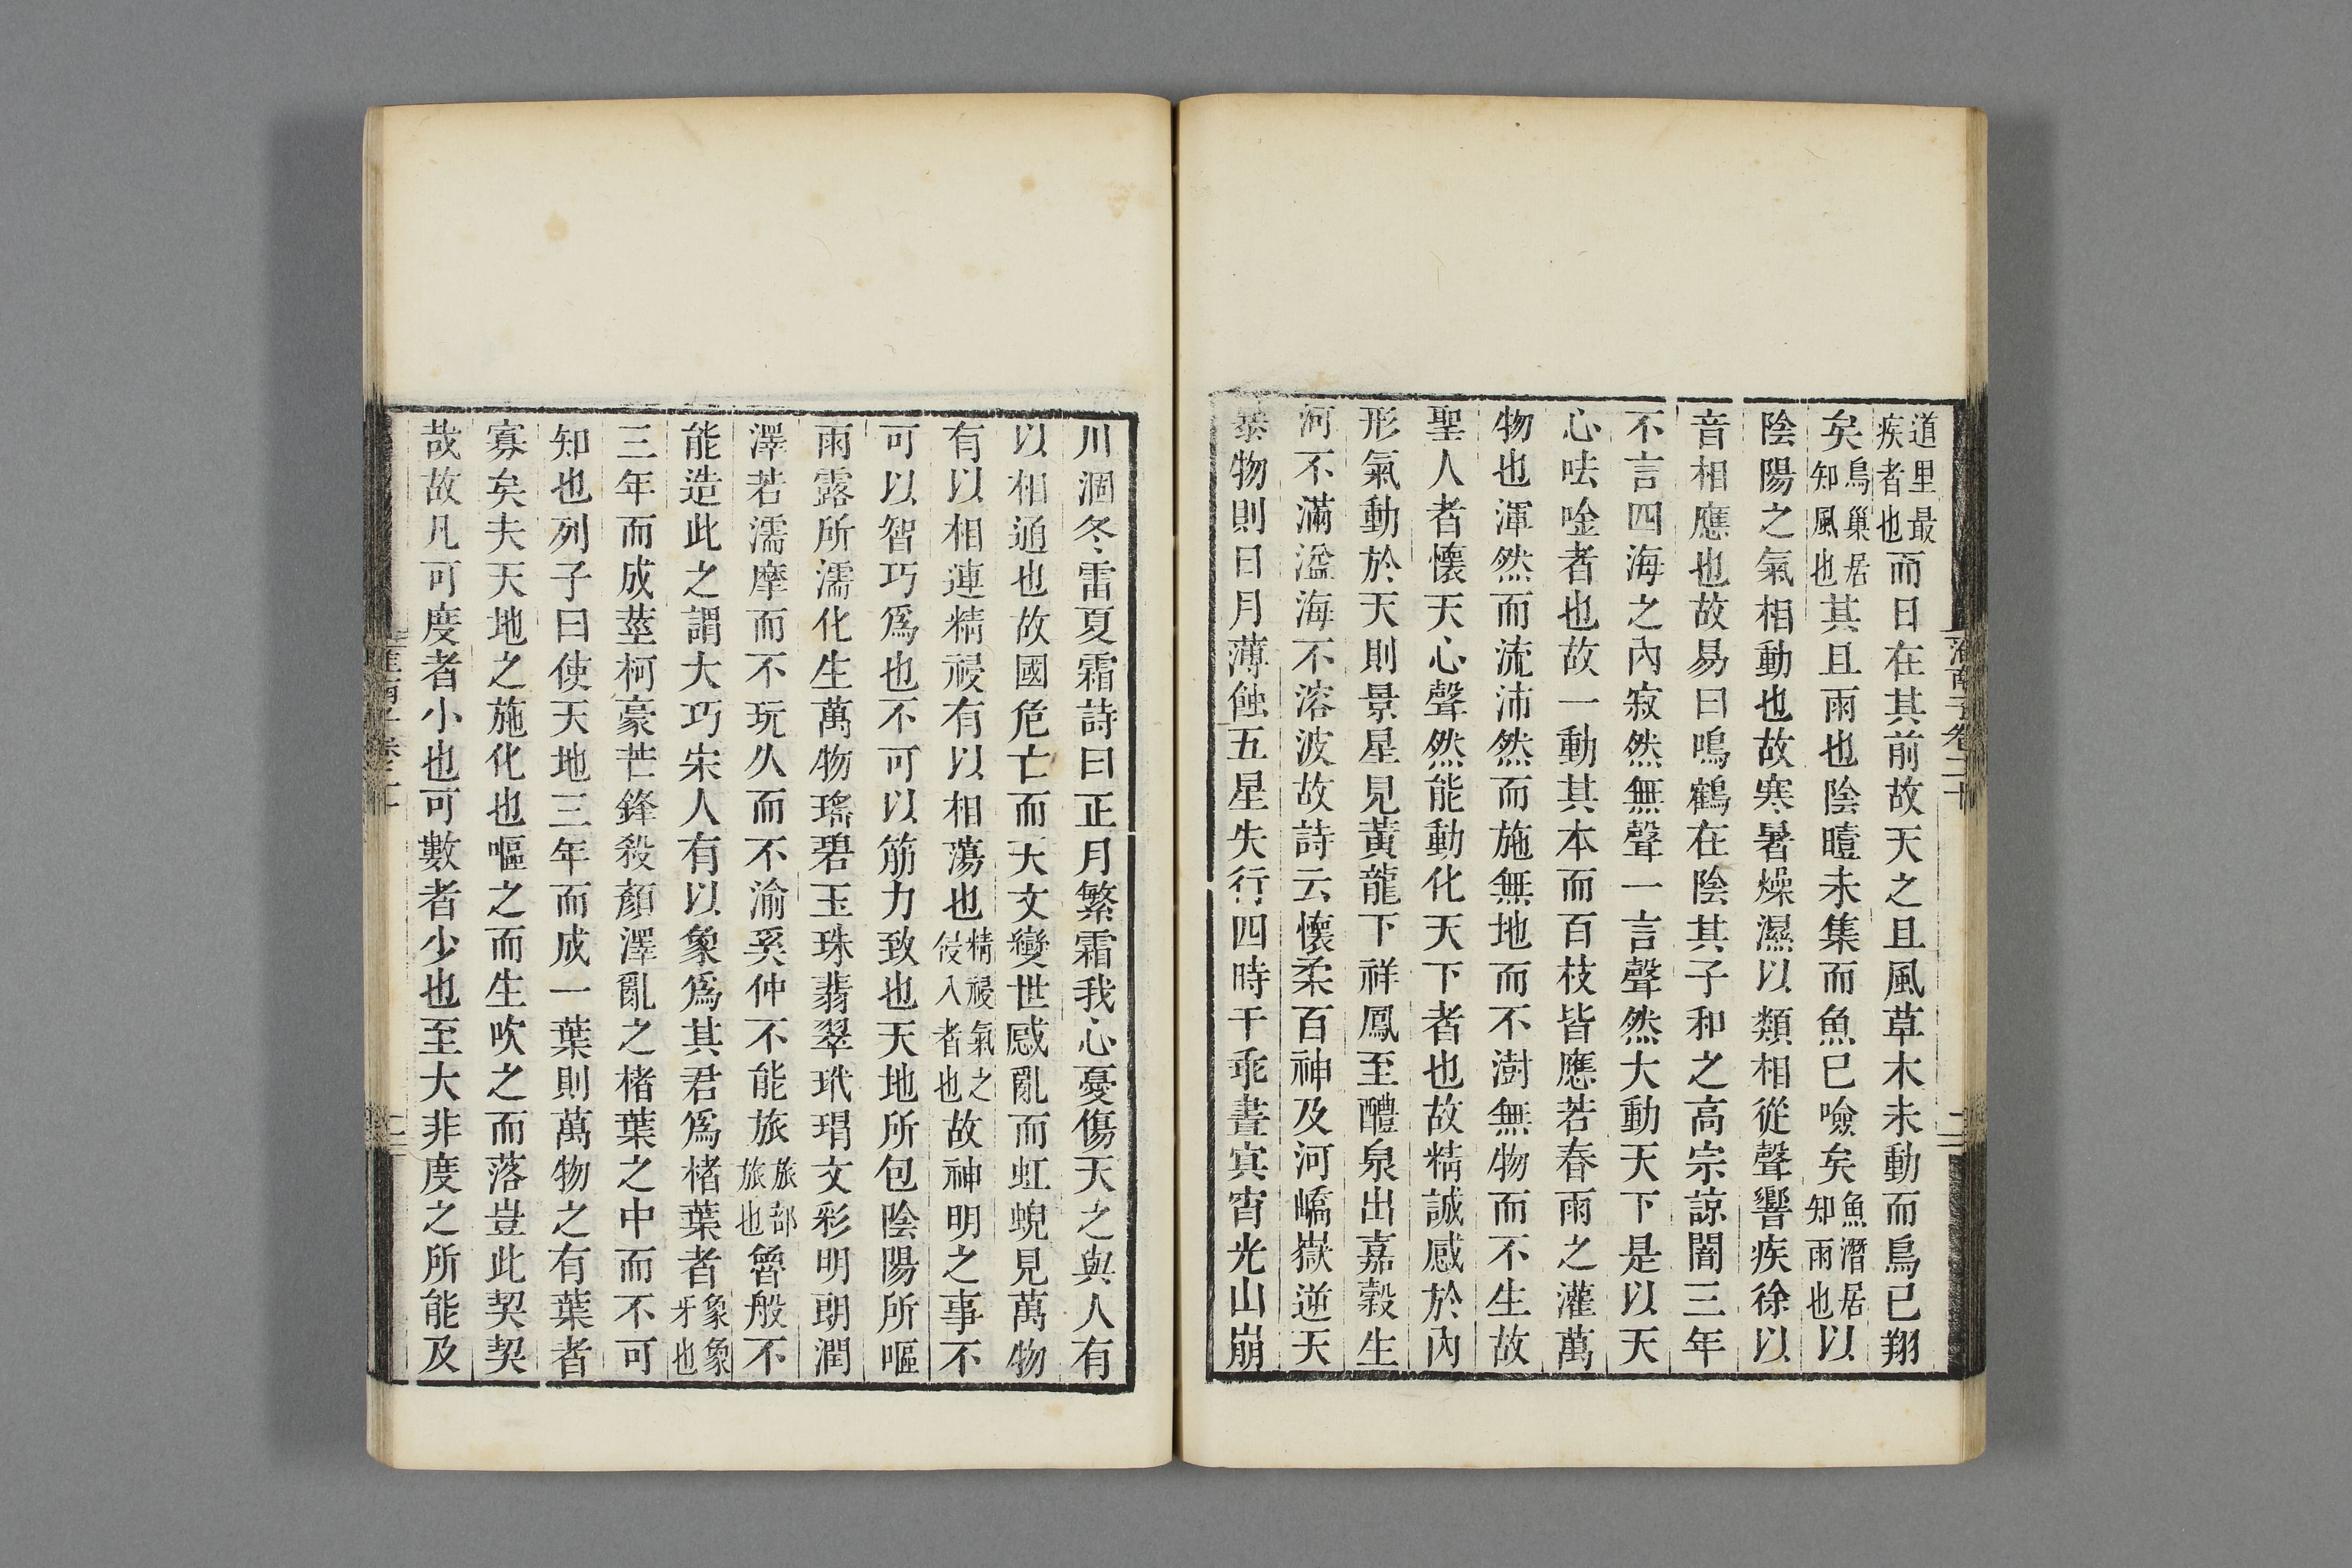 道里最疾者也而日在其前故天之且風草木未動而鳥已翔
矣鳥巢居知風也其且雨也陰曀未集而魚已噞矣魚潛居知雨也以
陰陽之氣相動也故寒暑燥濕以類相從聲響疾徐以
音相應也故易曰鳴鶴在陰其子和之高宗諒闇三年
不言四海之內寂然無聲一言聲然大動天下是以天
心呿唫者也故一動其本而百枝皆應若春雨之灌萬
物也渾然而流沛然而施無地而不澍無物而不生故
聖人者懷天心聲然能動化天下者也故精誠感於內
形氣動於天則景星見黃龍下祥鳳至醴泉出嘉穀生
河不滿溢海不溶波故詩云懷柔百神及河嶠嶽逆天
暴物則日月薄蝕五星失行四時干乖晝宾宵光山崩
淮南子卷二十
二
川涸冬雷夏霜詩曰正月繁霜我心憂傷天之與人有
以相通也故國危亡而天文變世惑亂而虹蜺見萬物
有以相連精祲有以相蕩也精祲氣之侵入者也故神明之事不
可以智巧爲也不可以筋力致也天地所包陰陽所嘔
雨露所濡化生萬物瑤碧玉珠翡翠玳瑁文彩明朗潤
澤若濡摩而不玩久而不渝奚仲不能旅旅部旅也魯般不
能造此之謂大巧宋人有以象爲其君爲楮葉者象象牙也
三年而成莖柯豪芒鋒殺顏澤亂之楮葉之中而不可
知也列子曰使天地三年而成一葉則萬物之有葉者
寡矣夫天地之施化也嘔之而生吹之而落豈此契契
哉故凡可度者小也可數者少也至大非度之所能及